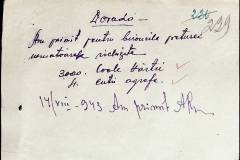 Dovadă –
226
229
Am primit pentru birourile preturei
următoarele rechizite
3000. Coale Hârtie
4. cutii agrafe.
17/VIII - 943 Am primit